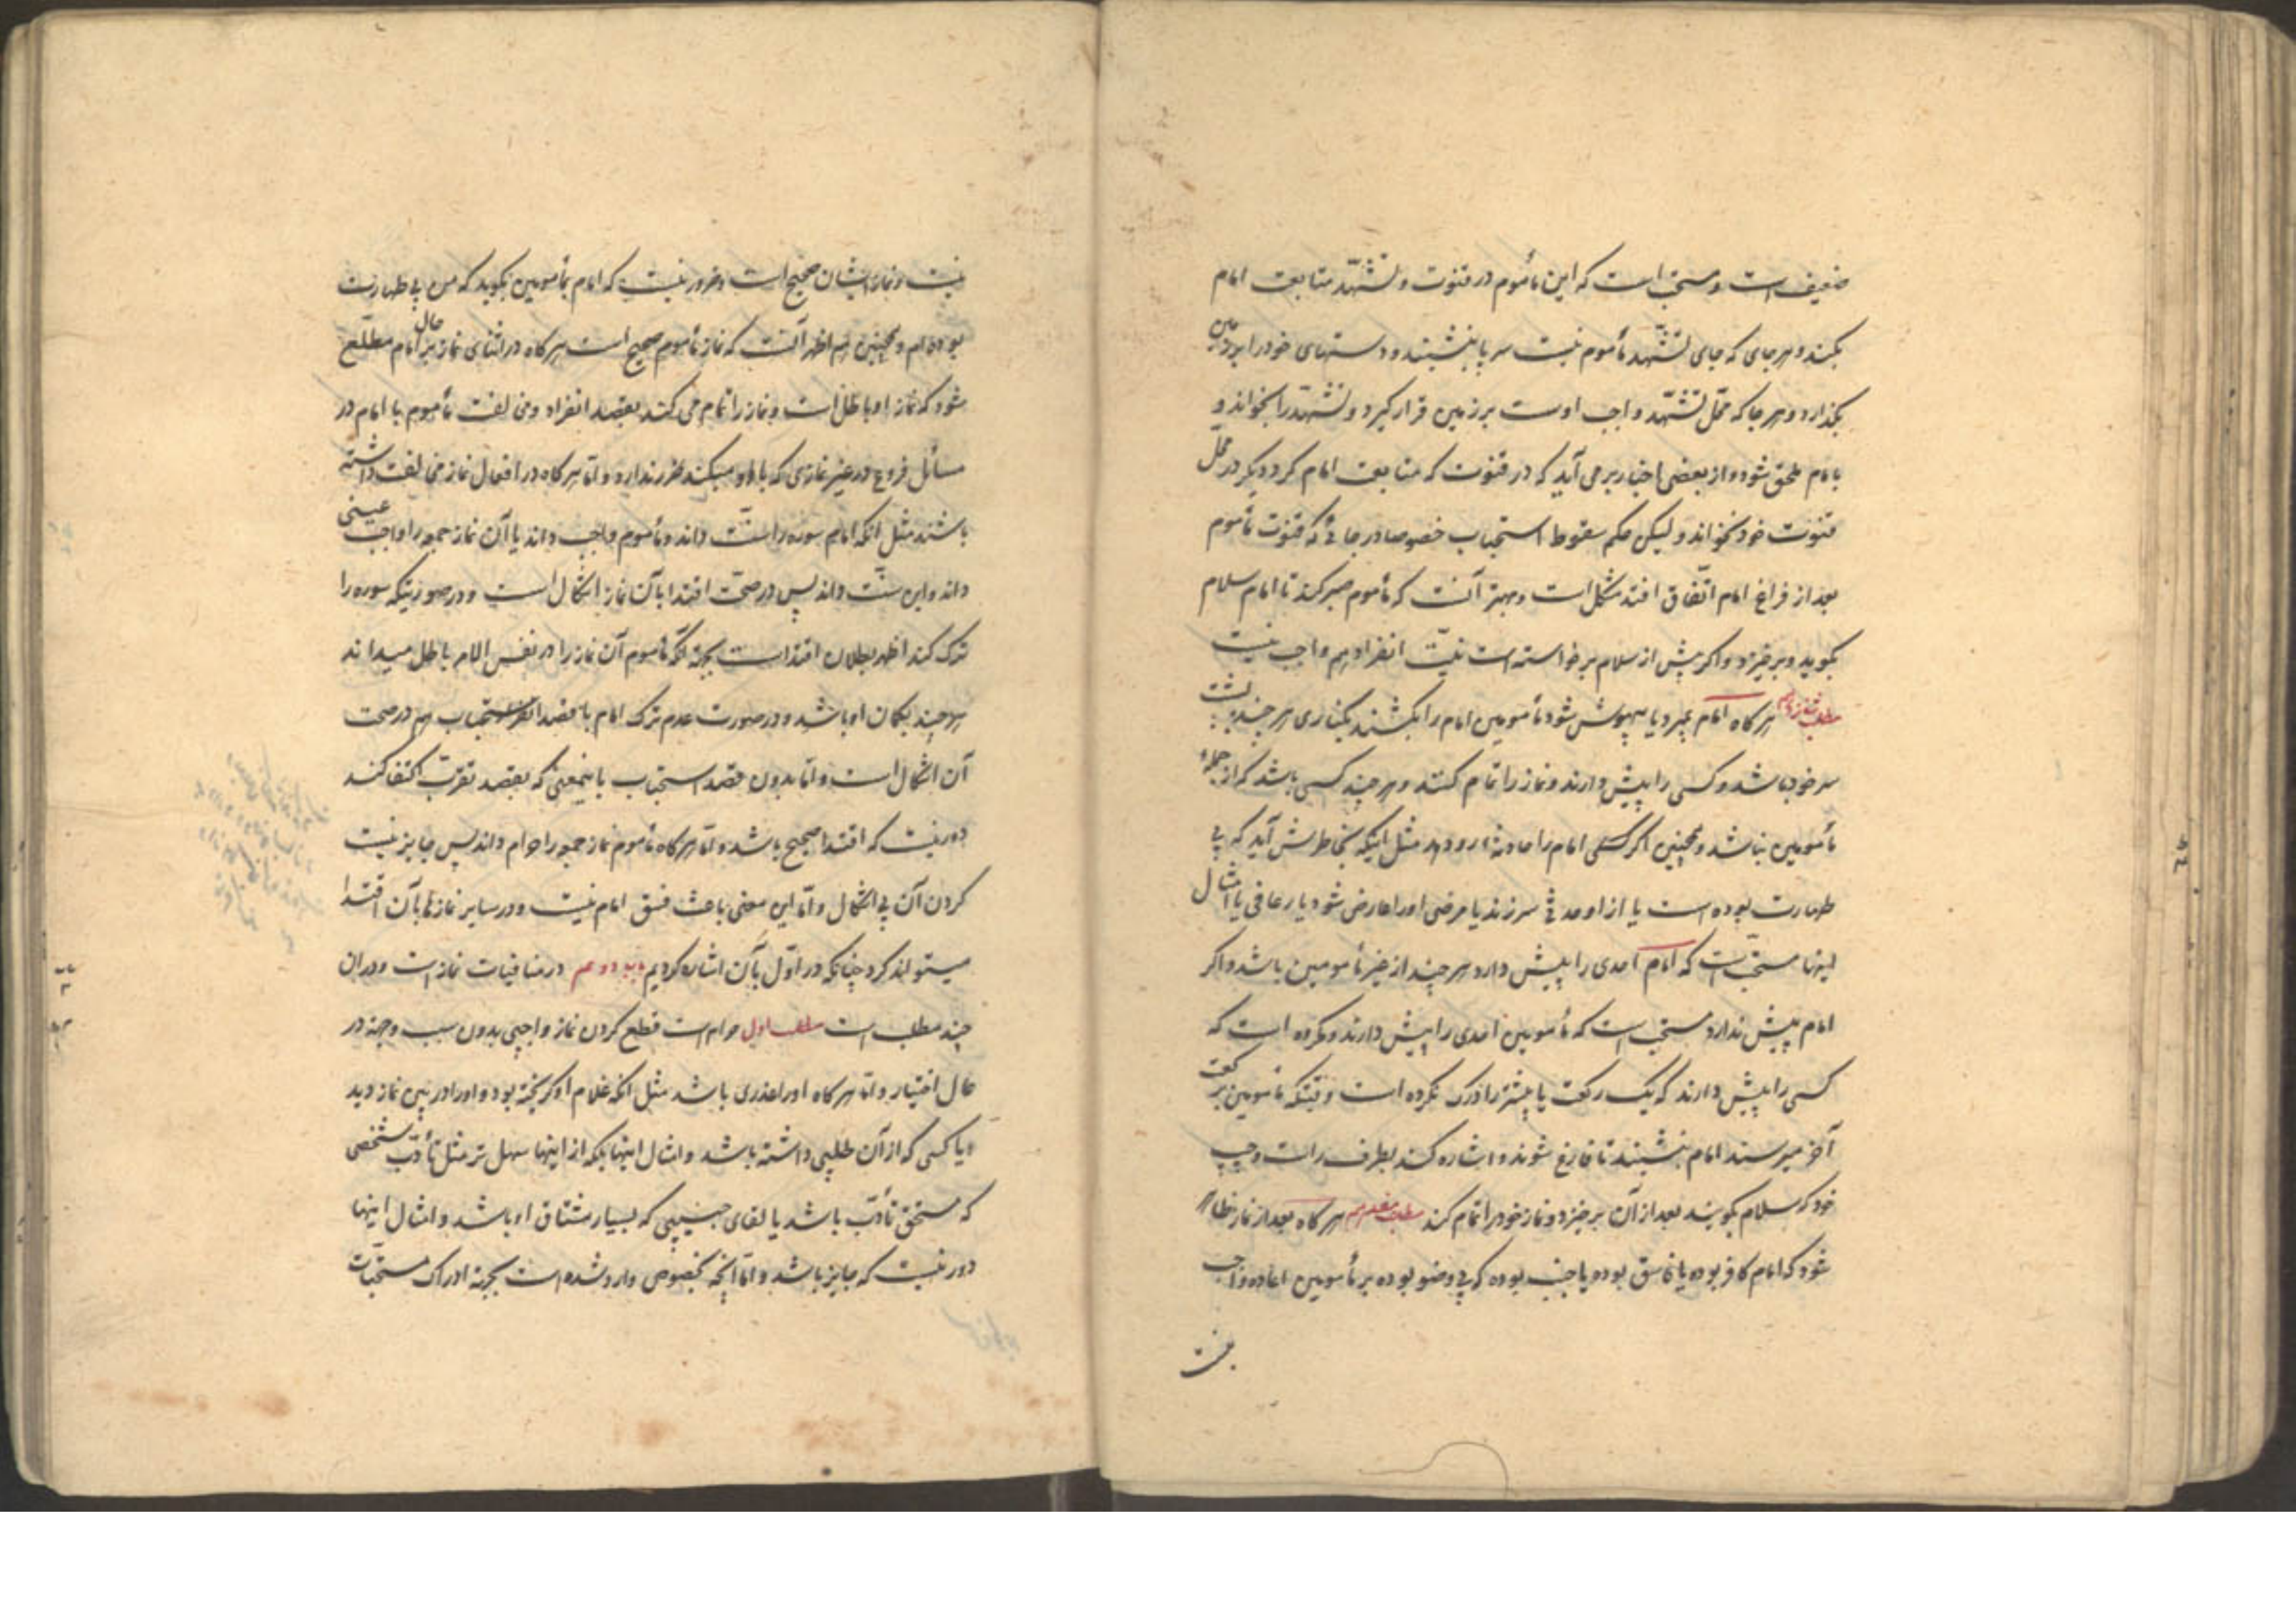 ضعیف است و مستحب است که این مأموم در قنوت و تشهّد متابعت امام
بکند و هر جای که جای تشهّد مأموم نیست سر پا بنشیند و دستهای خود را بر زمین
بگذارد و هر جا که محلّ تشهّد واجب اوست بر زمین قرار گیرد و تشهّد را بخواند و
بامام ملحق شود و از بعضی اخبار بر می آید که در قنوت که متابعت امام کرد دیگر در محلّ
قنوت خود نخواند و لیکن حکم سقوط استحباب خصوصا در جائی که قنوت مأموم
بعد از فراغ امام اتّفاق افتد مشکل است و بهتر آنست که مأموم صبر کند تا امام سلام
بگوید و برخیزد و اگر پیش از سلام برخواسته است نیّت انفراد هم واجب نیست
مطلب شانزدهم هر گاه امام بمیرد یا بیهوش شود مأمومین امام را بکشند بکناری هر چند پشت
سر خود باشد و کسی را پیش دارند و نماز را تمام کنند و هر چند کسی باشد که از جملۀ
مأمومین نباشد و همچنین اگر امام را حادثه رو دهد مثل اینکه بخاطرش آید که بی
طهارت بوده است یا از او حدثی سر زند یا مرضی او را عارض شود یا رعافی یا امثال
اینها مستحبّ است که امام احدی را پیش دارد هر چند از غیر مأمومین باشد و اگر
امام پیش ندارد مستحب است که مأمومین احدی را پیش دارند و مکروه است که
کسی را پیش دارند که یک رکعت یا بیشتر را درک نکرده است و وقتیکه مأمومین برکعت
آخر میرسند امام بنشیند تا فارغ شوند و اشاره کند بطرف راست و چپ
خود که سلام بگویند بعد از آن برخیزد و نماز خود را تمام کند مطلب هفدهم هر گاه بعد از نماز ظاهر
شود که امام کافر بوده یا فاسق بوده یا جنب بوده که بی وضو بوده بر مأمومین اعاده واجب
نیست و نماز ایشان صحیح است و ضرور نیست که امام بمأمومین بگوید که من بی طهارت
بوده ام و همچنین هم اظهر آنست که نماز مأموم صحیح است هر گاه در اثنای نماز بر حال امام مطلّع
شود که نماز او باطل است و نماز را تمام می کند بقصد انفراد و مخالفت مأموم با امام در
مسائل فروع در غیر نمازی که با او میکند ضرر ندارد و امّا هر گاه در افعال نماز مخالفت داشته
باشند مثل آنکه امام سوره را سنّت داند و مأموم واجب داند یا آن نماز جمعه را واجب عینی
داند و این سنّت داند پس در صحّت اقتدا بآن نماز اشکال است و در صورتیکه سوره را
ترک کند اظهر بطلان اقتداست بجهة آنکه مأموم آن نماز را در نفس الامر باطل میداند
هر چند بگمان او باشد و در صورت عدم ترک امام با قصد استحباب هم در صحت
آن اشکال است و امّا بدون قصد استحباب باینمعنی که بقصد تقرّب اکتفا کند
دور نیست که اقتدا صحیح باشد و امّا هر گاه مأموم نماز جمعه را حرام داند پس جایز نیست
کردن آن بی اشکال و امّا این معنی باعث فسق امام نیست و در سایر نمازها بآن اقتدا
میتواند کرد چنانکه در اوّل بآن اشاره کردیم باب دوم در منافیات نماز است و در آن
چند مطلب است مطلب اول حرام است قطع کردن نماز واجبی بدون سبب و جهة در
حال اختیار و امّا هر گاه او را عذری باشد مثل آنکه غلام او گریخته بود و او را در بین نماز دید
و یا کسی که از آن طلبی داشته باشد و امثال اینها بلکه از اینها سهل تر مثل تأدّب شخصی
که مستحق تأدّب باشد یا لقای حبیبی که بسیار مشتاق او باشد و امثال اینها
دور نیست که جایز باشد و امّا آنچه بخصوص وارد شده است بجهة ادراک مستحبّات